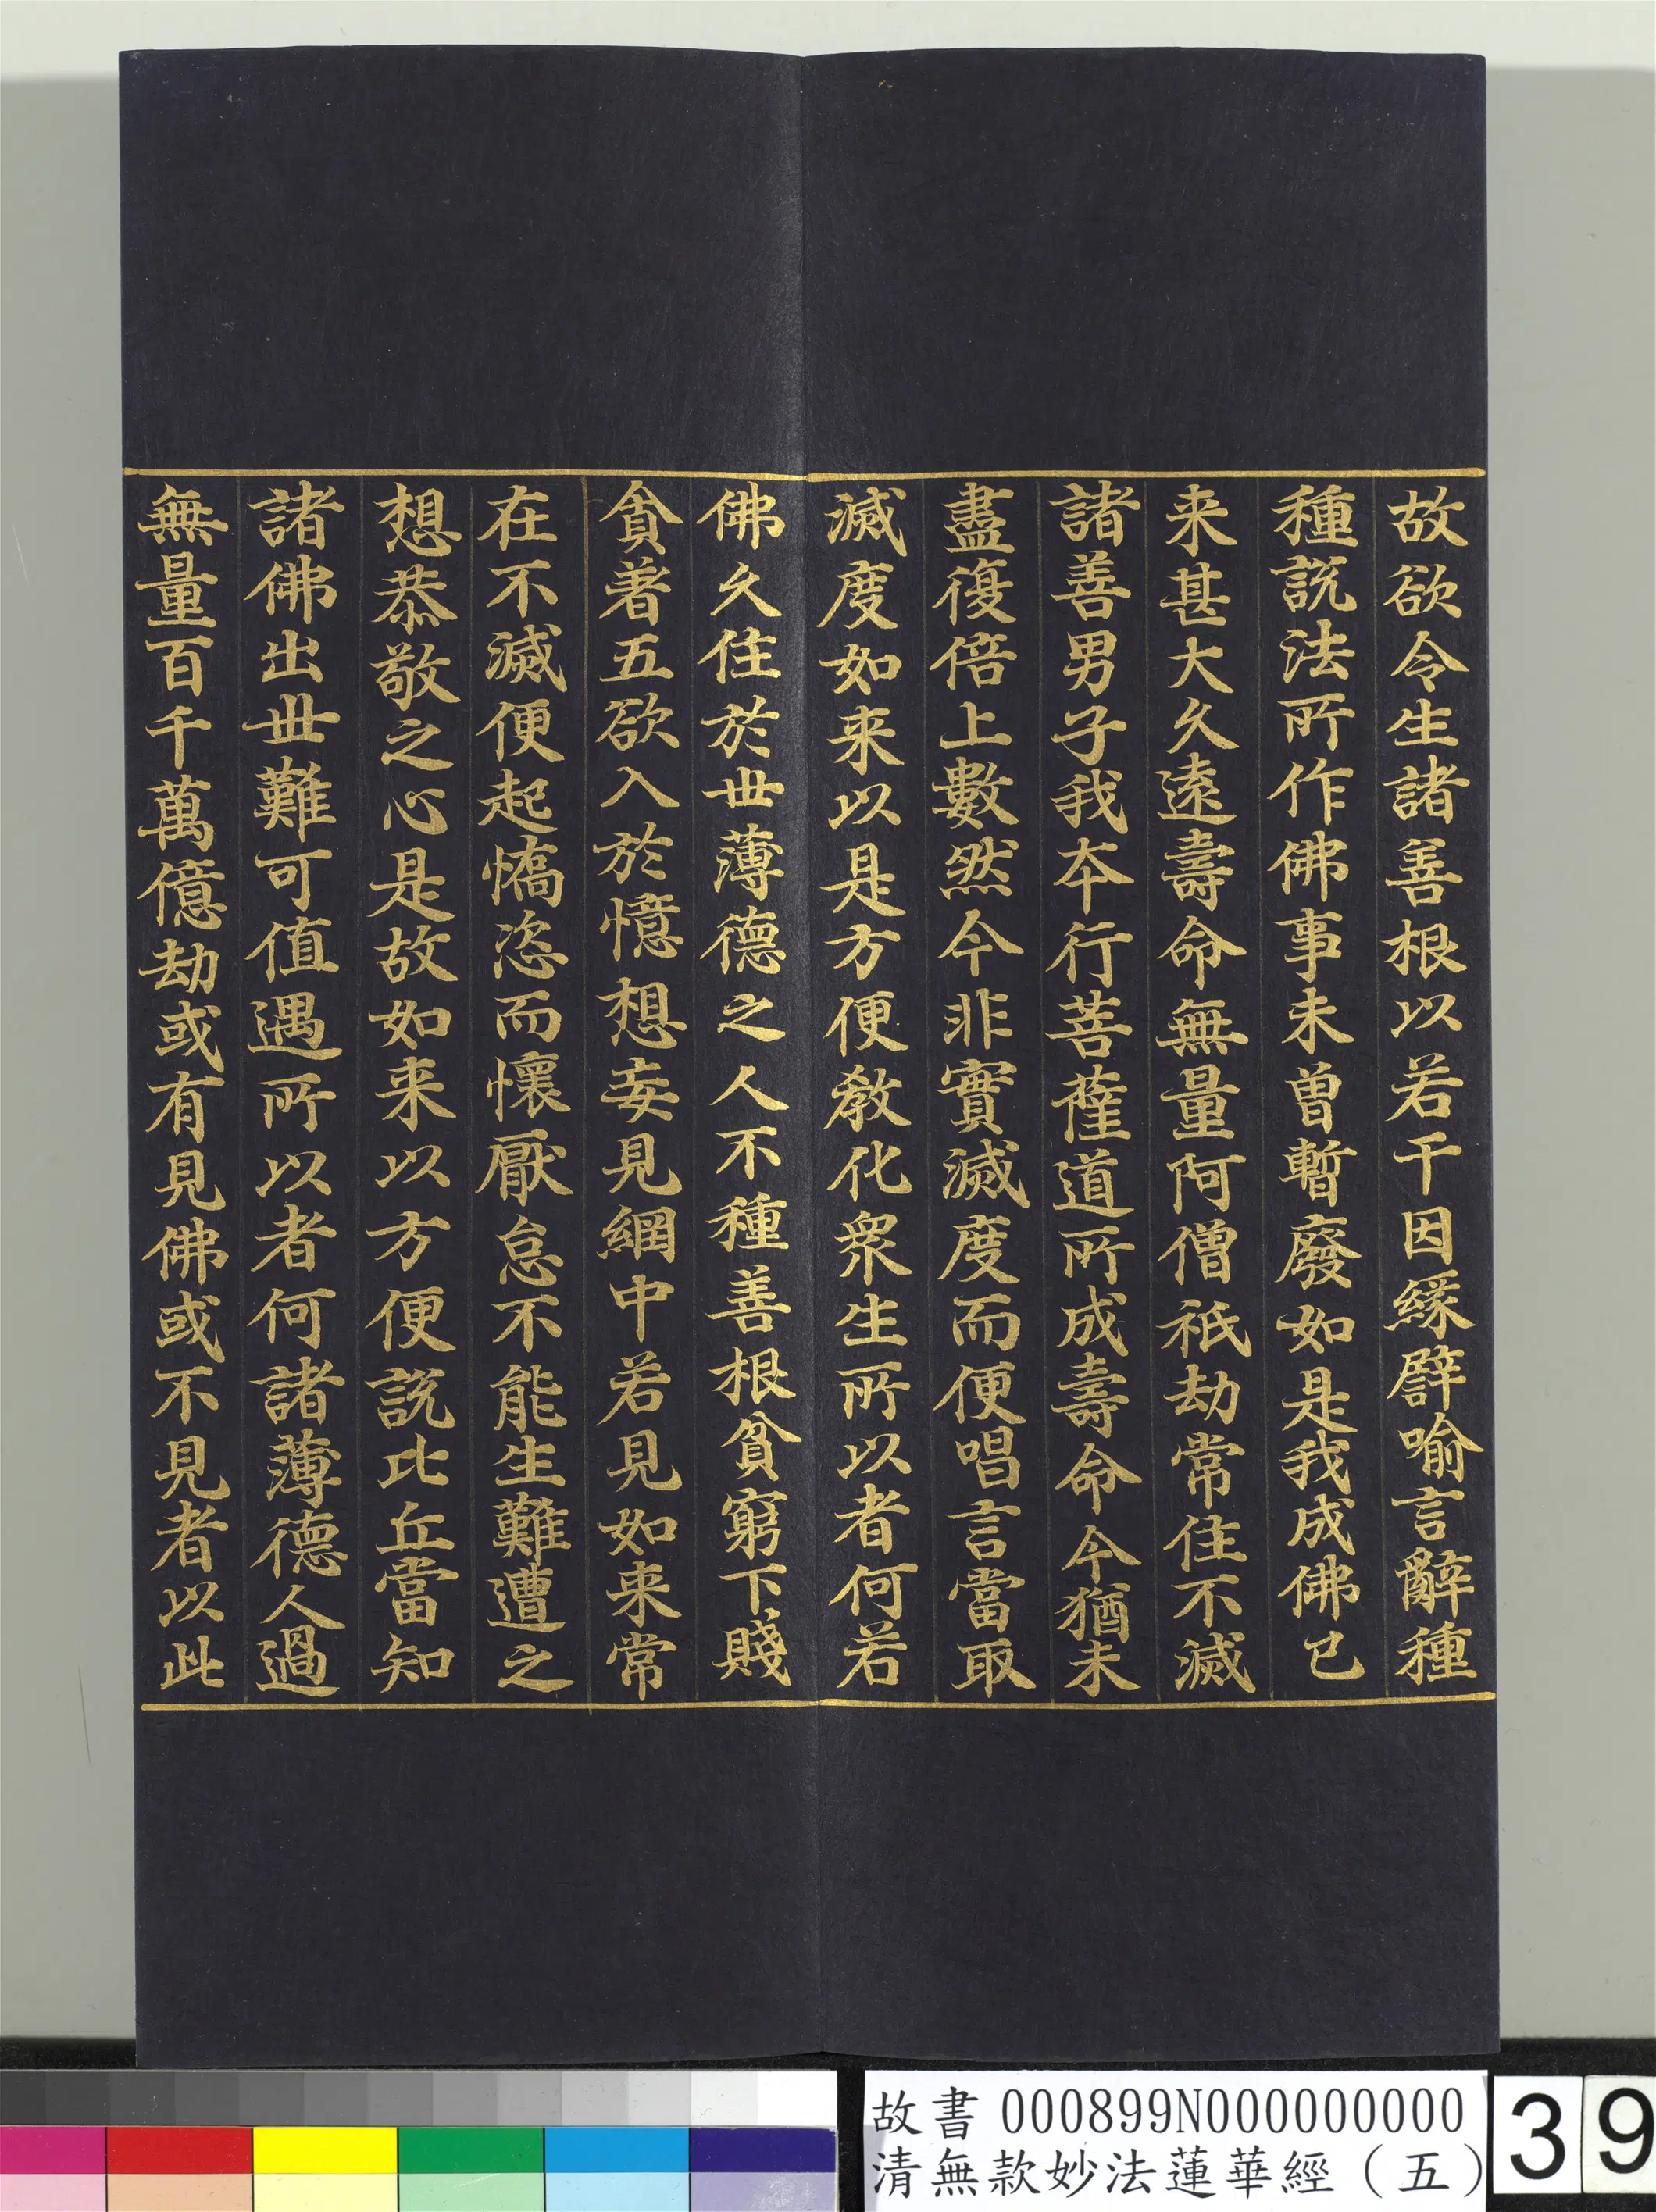 故欲令生諸善根以若干因緣譬喻言辭種
種説法所作佛事未曽暫廢如是我成佛已
来甚大久遠壽命無量阿僧祇劫常住不滅
諸善男子我本行菩薩道所成壽命今猶未
盡復倍上數然今非實滅度而便唱言當取
滅度如来以是方便教化衆生所以者何若
佛久住於世薄德之人不種善根貧窮下賤
貪著五欲入於憶想妄見網中若見如来常
在不滅便起憍恣而懷厭怠不能生難遭之
想恭敬之心是故如来以方便説比丘當知
諸佛出世難可值遇所以者何諸薄德人過
無量百千萬億劫或有見佛或不見者以此
故書 000899N000000000
清無款妙法蓮華經（五）
39